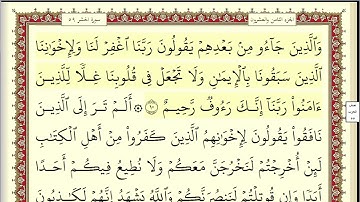 الجزء الثامن والعشرون سورة الحشر ٥٩
وَٱلَّذِينَ جَآءُو مِنۢ بَعْدِهِمْ يَقُولُونَ رَبَّنَا ٱغْفِرْ لَنَا وَلِإِخْوَٰنِنَا
ٱلَّذِينَ سَبَقُونَا بِٱلْإِيمَٰنِ وَلَا تَجْعَلْ فِى قُلُوبِنَا غِلًّا لِّلَّذِينَ
ءَامَنُوا۟ رَبَّنَآ إِنَّكَ رَءُوفٌ رَّحِيمٌ ١٠ ۞ أَلَمْ تَرَ إِلَى ٱلَّذِينَ
نَافَقُوا۟ يَقُولُونَ لِإِخْوَٰنِهِمُ ٱلَّذِينَ كَفَرُوا۟ مِنْ أَهْلِ ٱلْكِتَٰبِ
لَئِنْ أُخْرِجْتُمْ لَنَخْرُجَنَّ مَعَكُمْ وَلَا نُطِيعُ فِيكُمْ أَحَدًا
أَبَدًا وَإِن قُوتِلْتُمْ لَنَنصُرَنَّكُمْ وَٱللَّهُ يَشْهَدُ إِنَّهُمْ لَكَٰذِبُونَ